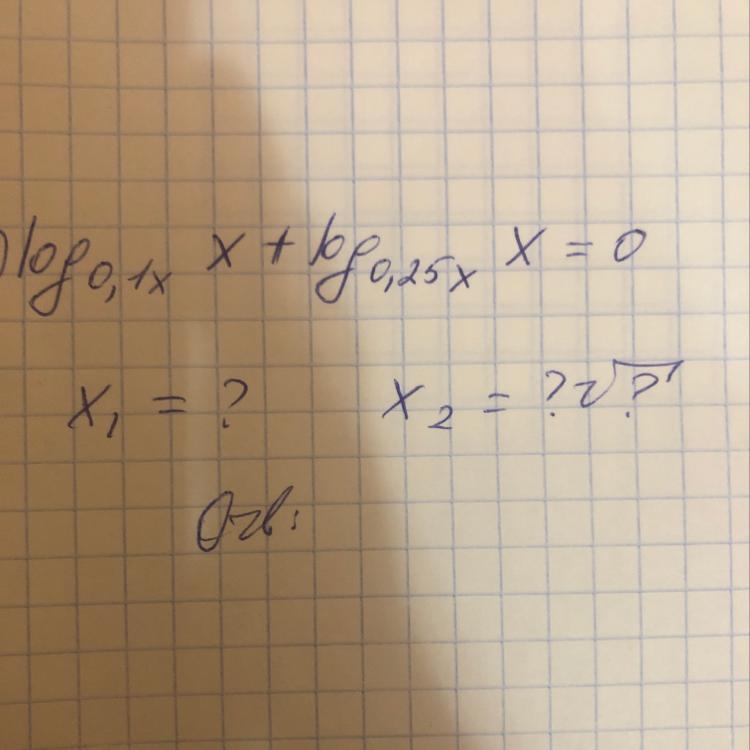 ) log₀,₁ₓ x + log₀,₂₅ₓ x = 0
x₁ = ? x₂ = ?√?
Отв: